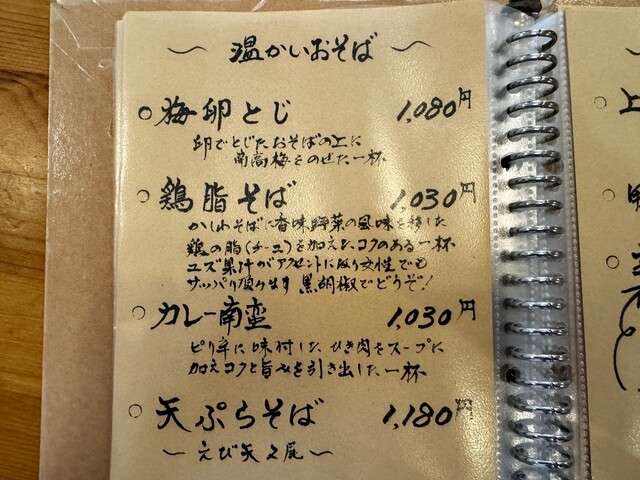 〜 温かいおそば 〜
○ 梅卵とじ 1,080円
卵でとじたおそばの上に
南高梅をのせた一杯
○ 鶏脂そば 1,030円
かしわそばに香味野菜の風味を移した
鶏の脂(チーユ)を加えたコクのある一杯
ユズ果汁がアクセントになり女性でも
サッパリ頂けます 黒胡椒でどうぞ!
○ カレー南蛮 1,030円
ピリ辛に味付した ひき肉をスープに
加えコクと旨みを引き出した一杯
○ 天ぷらそば 1,180円
〜 えび天2尾 〜
上